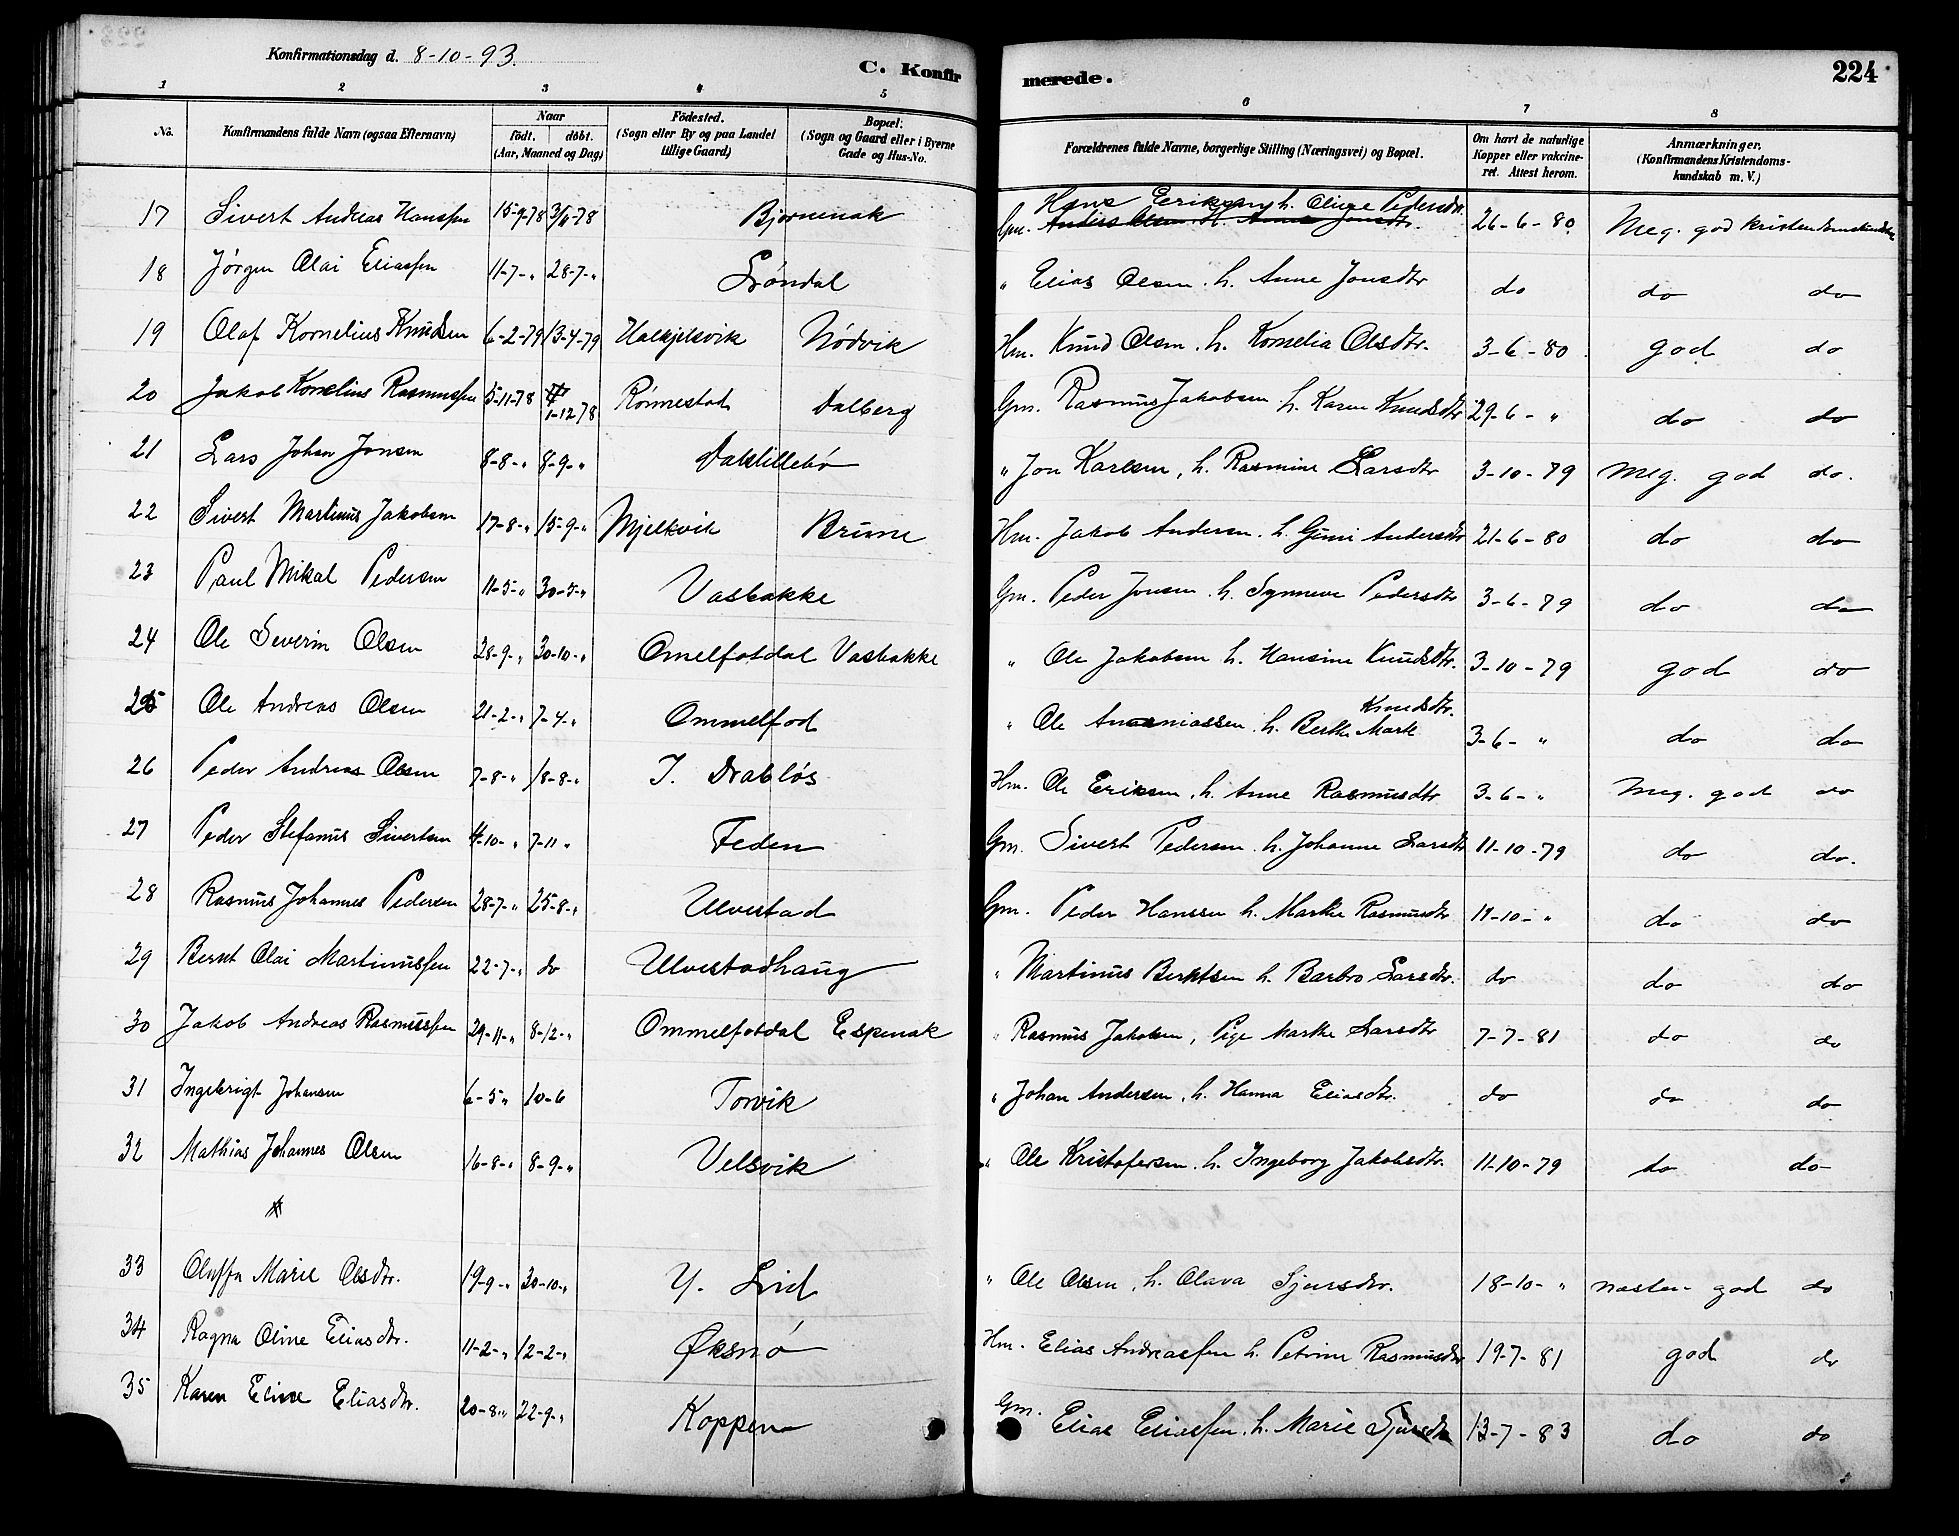 Konfirmationsdag d. 8-10-93.
C. Konfirmerede.
224
1 2 3 4 5 6 7 8
No. Konfirmandens fulde Navn (ogsaa Efternavn) Naar födt. döbt. (Aar, Maaned og Dag) Födested. (Sogn eller By og paa Landet tillige Gaard) Bopæl. (Sogn og Gaard eller i Byerne Gade og Hus-No. Forældrenes fulde Navne, borgerlige Stilling (Næringsvei) og Bopæl. Om havt de naturlige Kopper eller vakcineret. Attest herom. Anmærkninger. (Konfirmandens Kristendomskundskab m. V.)
17 Sivert Andreas Hanssen 15-9-78 3/11-78 Bjørnenak Gm. Hans Eriksen, h. Oline Pedersdtr. Anders Olsen h. Anne Jonsdtr. 26-6-80 Meg. god kristendomskundskab
18 Jørgen Olai Eliassen 11-7-" 28-7-" Løndal " Elias Olsen. h. Anne Jonsdtr do do do
19 Olaf Kornelius Knudsen 6-2-79 13-4-79 Halkjelsvik Nødvik Hm. Knud Olsen. h. Kornelia Olsdtr. 3-6-80. god do
20 Jakob Kornelius Rasmussen 5-11-78 1-12 78 Rønnestad Dalberg Gm. Rasmus Jakobsen. h. Karen Knudsdtr 29-6-" do do
21 Lars Johan Jonsen 8-8-" 8-9-" Dalslillebø " Jon Karlsen, h. Rasmine Larsdtr 3-10-79 Meg. god do.
22 Sivert Martinus Jakobsen 17-8-" 15-9-" Mjelkvik Brune Hm. Jakob Andersen. h. Guni Andersdtr 21-6-80 do do
23 Paul Mikal Pedersen 11-5-" 30-5-" Vasbakke Gm. Peder Jonsen. h. Synneve Pedersdtr 3-6-79 do do
24 Ole Severin Olsen 28-9-" 30-10-" Omelfotdal Vasbakke " Ole Jakobsen h. Hansine Knudsdtr. 3-10-79 god do
25 Ole Andreas Olsen 21-2-" 7-4-" Ommelfod " Ole Ananiassen. h. Berthe Marte Knudsdtr. 3-6-" do do
26 Peder Andreas Olsen 7-8-" 18-8-" I. Drabløs Hm. Ole Eriksen, h. Anne Rasmusdtr 3-6-" Meg. god do
27 Peder Stefanus Sivertsen 4-10-" 7-11 " Feden Gm. Sivert Pedersen. h. Johanne Larsdtr 11-10-79 do do.
28 Rasmus Johannes Pedersen 28-7-" 25-8-" Ulvestad Gm. Peder Hanssen h. Marthe Rasmusdtr 11-10-" do do
29 Bernt Olai Martinussen 22-7-" do Ulvestadhaug " Martinus Berntsen h. Barbro Larsdtr. do do do
30 Jakob Andreas Rasmussen 29-11-" 8-12-" Ommelfotdal Espenak " Rasmus Jakobsen, Pige Marthe Larsdtr 7-7-81 do do
31 Ingebrigt Johansen 6-5-" 10-6 Torvik " Johan Andersen, h. Hanna Eliasdtr. do do do
32 Mathias Johannes Olsen 16-8-" 8-9-" Velsvik " Ole Kristofersen. h. Ingeborg Jakobsdtr. 11-10-79 do do
33 Oluffa Marie Olsdtr. 19-9-" 30-10-" Y. Lid " Ole Olsen, h. Olava Sjursdtr. 18-10-" næsten god do
34 Ragna Oline Eliasdtr. 11-2-" 12-2-" Øksnø Hm. Elias Andreassen h. Petrine Rasmusdtr 19-7-81 god do
35 Karen Eline Eliasdtr. 20-8-" 22-9-" Koppen Gm. Elias Eliassen. h. Marie Sjursdtr 13-7-83 do do